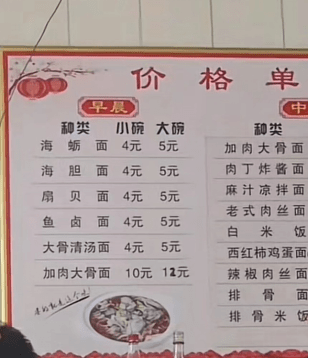 价格单
早晨
种类 小碗 大碗
海蛎面 4元 5元
海胆面 4元 5元
扇贝面 4元 5元
鱼卤面 4元 5元
大骨清汤面 4元 5元
加肉大骨面 10元 12元
中
种类
加肉大骨面
肉丁炸酱面
麻汁凉拌面
老式肉丝面
白米饭
西红柿鸡蛋面
辣椒肉丝面
排骨面
排骨米饭